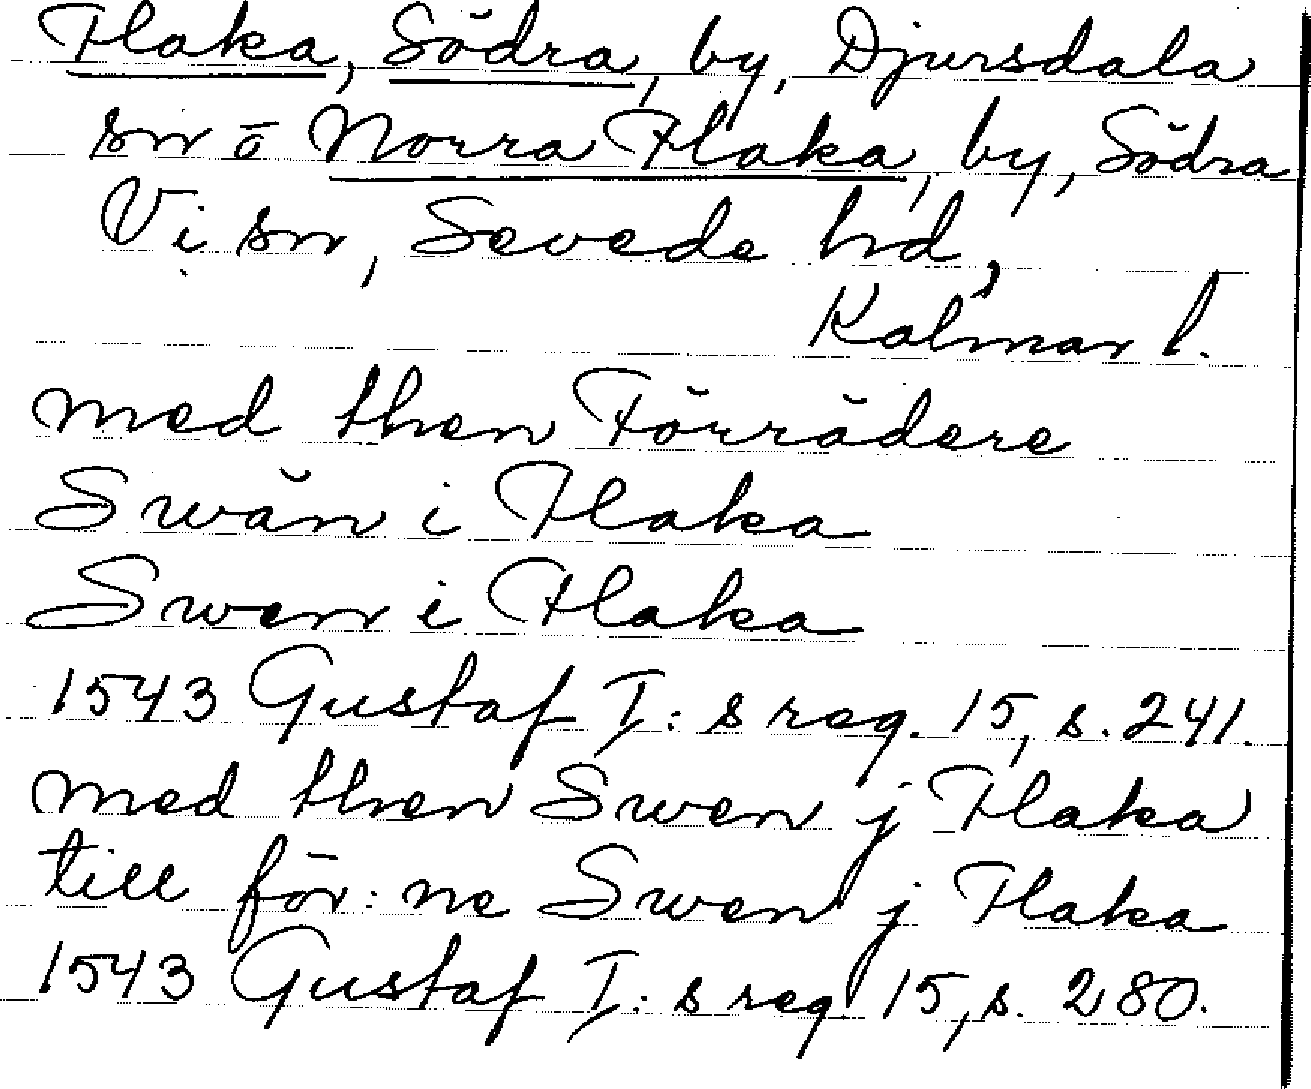 Flaka, Södra, by, Djursdala
sn o Norra Flaka, by, Södra
Vi sn, Sevede hd,
Kalmar l.
med then Förrädere
Swän i Flaka
Swen i Flaka
1543 Gustaf I:s reg. 15, s. 241.
med then Swen j Flaka
till för:ne Swen j Flaka
1543 Gustaf I:s reg 15, s. 280.